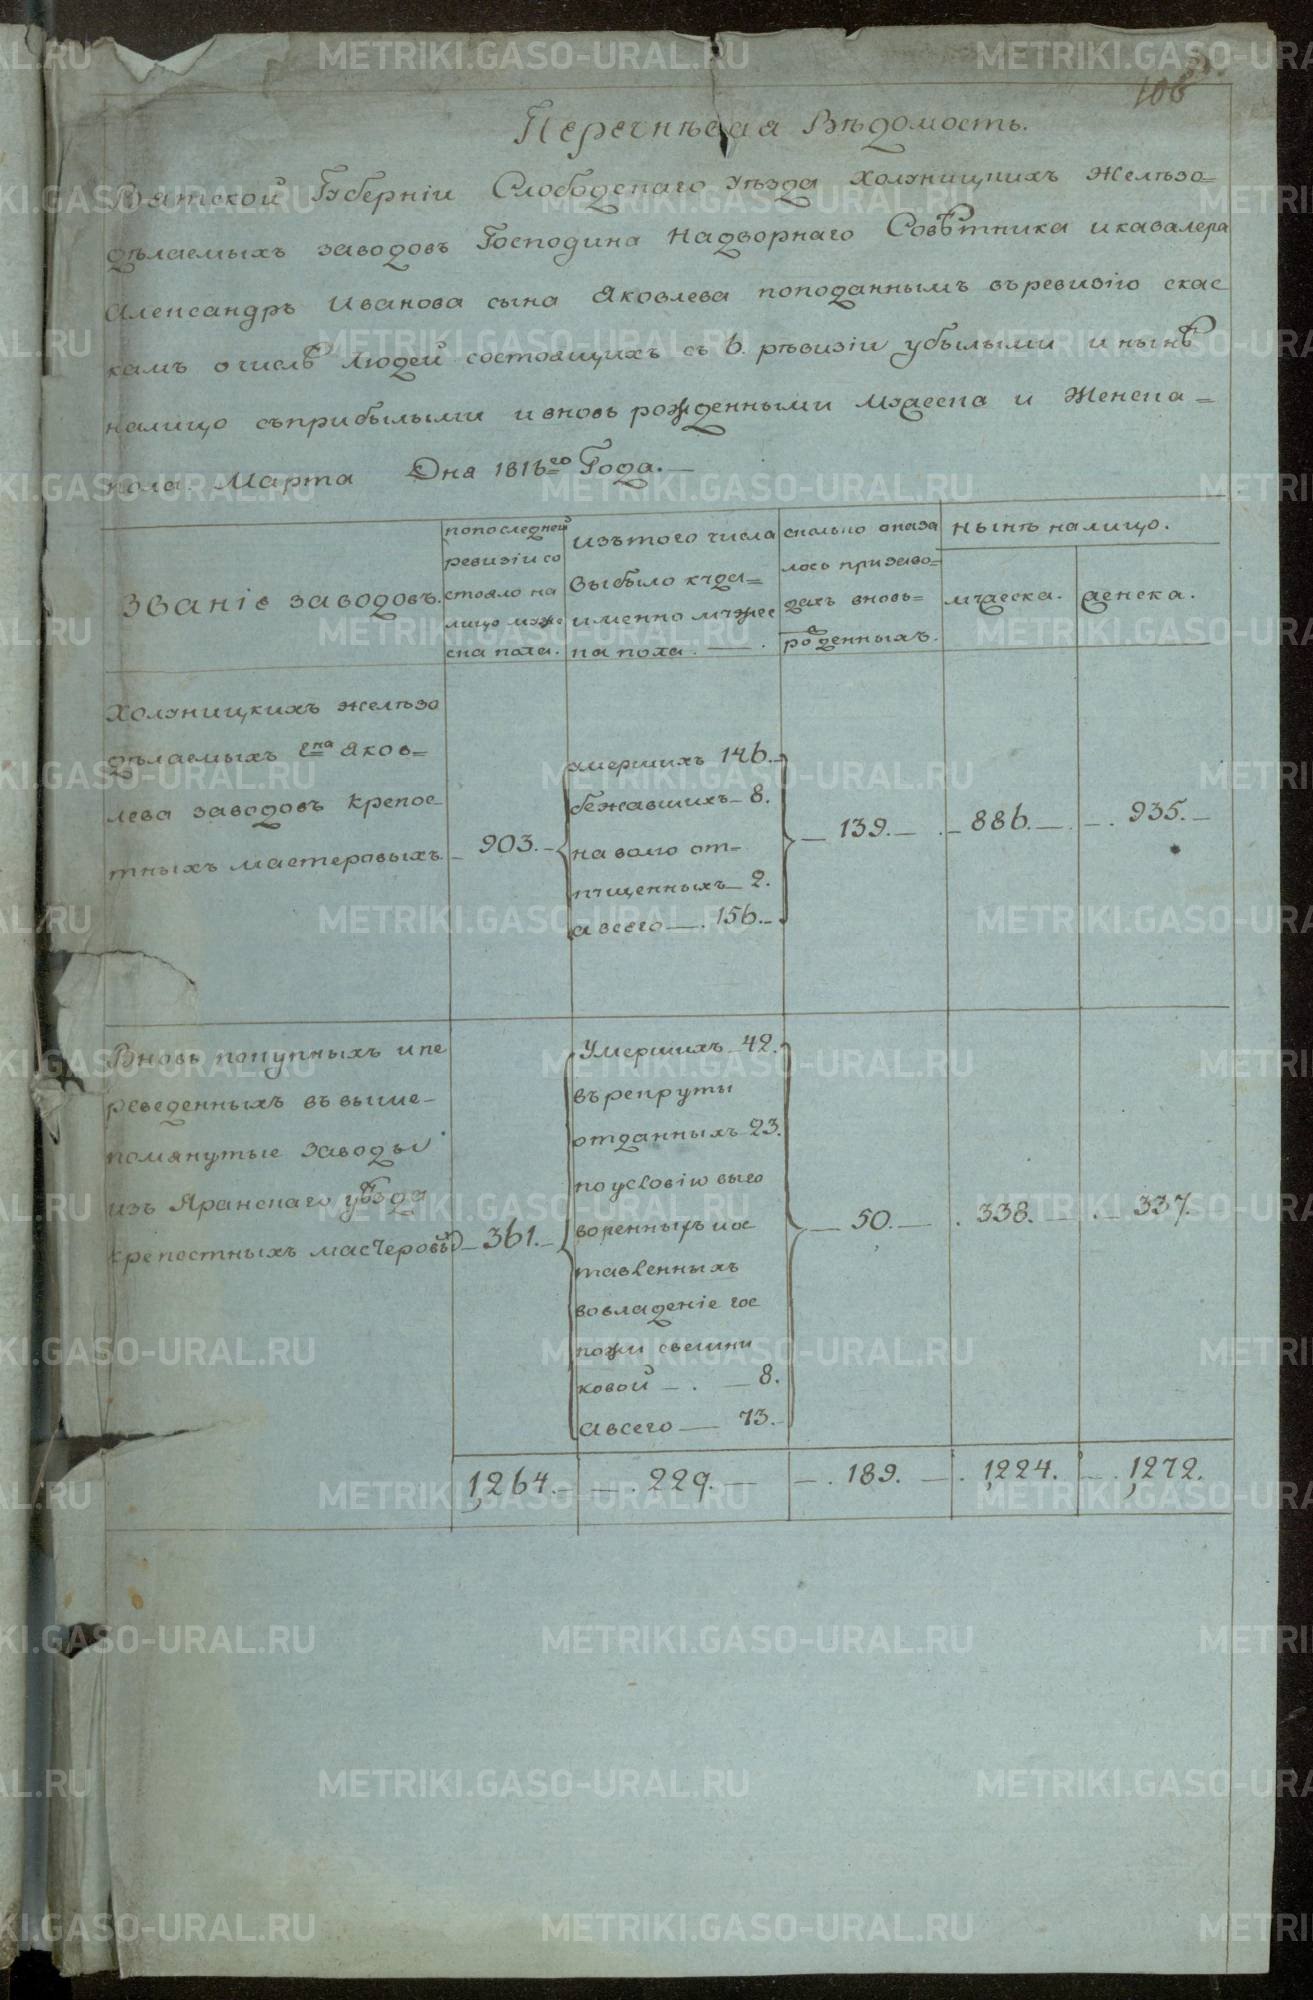 106
Перечнѣвая Вѣдомость.
Вятской Губерніи Слободскаго уѣзда Холуницкихъ Желѣзо=
дѣлаемыхъ заводовъ Господина Надворнаго Совѣтника икавалера
Александръ Иванова сына Яковлева поподаннымъ въревизію скас
камъ очислѣ людей состоящихъ съ 6. рѣвизіи убылыми и нынѣ
налицо съприбылыми ивновь рожденными мужеска и Женска=
пола. Марта Дня 1816го Года.—
Званіе заводовъ.
попоследней
ревизіи со
стояло на
лицо муже
ска пола.
изътого числа
выбыло куда=
именно мужес
ка пола.—.
сколько оказа
лось призаво=
дахъ вновь=
рожденныхъ.
нынѣ налицо.
мужеска.
женска.
Холуницкихъ желѣзо
дѣлаемыхъ гна Яков=
лева заводовъ крепос=
тныхъ мастеровыхъ.
— 903.—
умершихъ 146.—
бежавшихъ— 8.
наволю от=
пущенныхъ— 2.
авсего—. 156.—
— 139.—
.— 886.—.
—. 935.—
Вновь покупныхъ ипе
реведенныхъ въвыше=
помянутые заводы
изъ Яранскаго уѣзда
крепостныхъ мастеровы
— 361.—
Умершихъ—42.
върекруты
отданныхъ 23.
поусловію выго
воренныхъ иос
тавленныхъ
вовладеніе гос
пожи свешни
ковой —. — 8.
авсего — 73.—
— 50.—
. 338.—
—. 337.
1,264.—
—. 229.—
—. 189.—
. 1,224.
—. 1,272.
METRIKI.GASO-URAL.RU